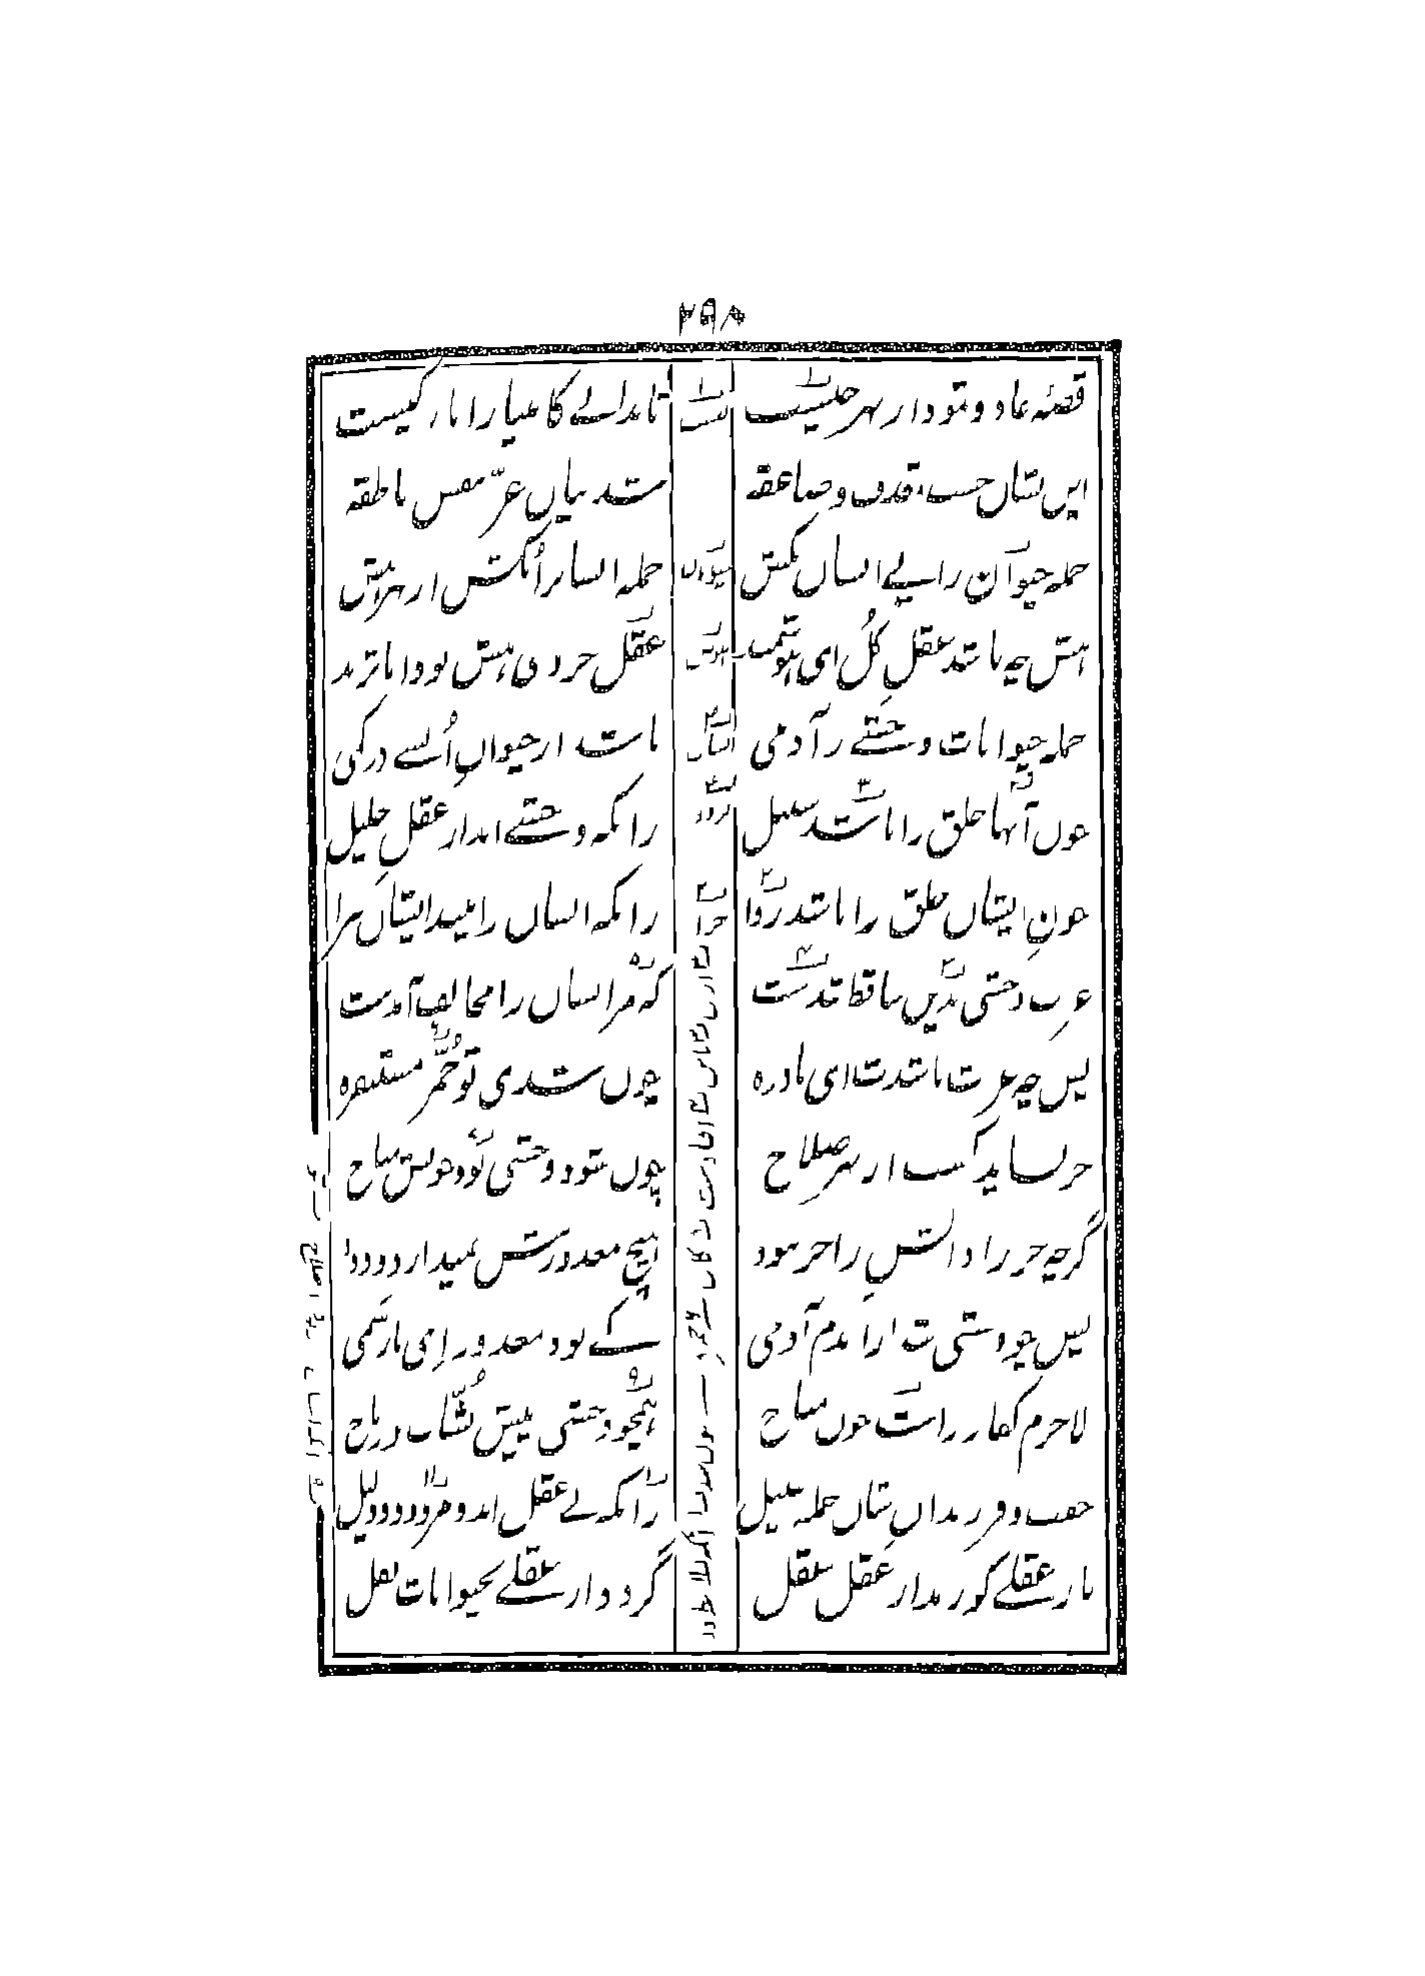 ۲۵۸
قصّهٔ عاد و ثمود از بهر چیست تا بدانی کانبیا را نازکیست
این نشان خسف و قذف و صاعقه شد بیان عزّ نفس ناطقه
جمله حیوان را پی انسان بکش جمله انسان را بکش از بهر هش
هش چه باشد عقلِ کُل ای هوشمند عقل جزوی هش بود اما نژند
جمله حیوانات وحشی ز آدمی باشد از حیوانِ اُنسی در کمی
خون آنها خلق را باشد سبیل زانکه وحشی‌اند از عقلِ جلیل
خونِ ایشان خلق را باشد روا زانکه انسان را نیند ایشان سزا
عزت وحشی بدین ساقط شدست که مر انسان را مخالف آمدست
پس چه عزت باشدت ای نادره چون شدی تو حُمُرٌ مستنفره
خر نشاید کشت از بهر صلاح چون شود وحشی شود خونش مباح
گرچه خر را دانشِ زاجر نبود هیچ معذورش نمیدارد ودود
پس چو وحشی شد ازان دم آدمی کے بود معذور ای یار سَمی
لاجرم کفار را شد خون مباح همچو وحشی پیش نُشّاب و رماح
جفت و فرزندانِ شان جمله سبیل زانکه بے عقل‌اند و مردود و ذلیل
باز عقلے کو رمد از عقلِ عقل گردد از عقلے بحیوانات نقل